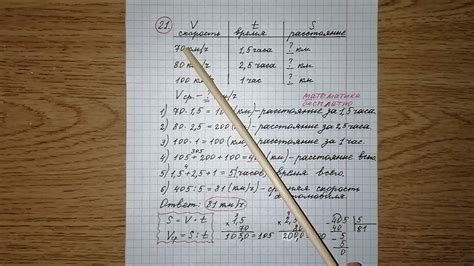 21. V t S
скорость время расстояние
70 км/ч 1,5 часа ? км
80 км/ч 2,5 часа ? км
100 км/ч 1 час ? км
Vср. – км/ч
математика
бесплатно
1) 70 · 1,5 = (км) – расстояние за 1,5 часа.
2) 80 · 2,5 = 200 (км) – расстояние за 2,5 часа
3) 100 · 1 = 100 (км) – расстояние за 1 час.
4) 105 + 200 + 100 = (км) – расстояние всего.
305
5) 1,5 + 2,5 + 1 = 5 (часов) время всего.
4
6) 405 : 5 = 81 (км/ч) – скорость
автомобиля.
Ответ: 81 км/ч
S = V · t
Vср = S : t
× 1,5
70
105,0 = 105
× 2,5
80
200,0
405 5
40 81
5
5
0